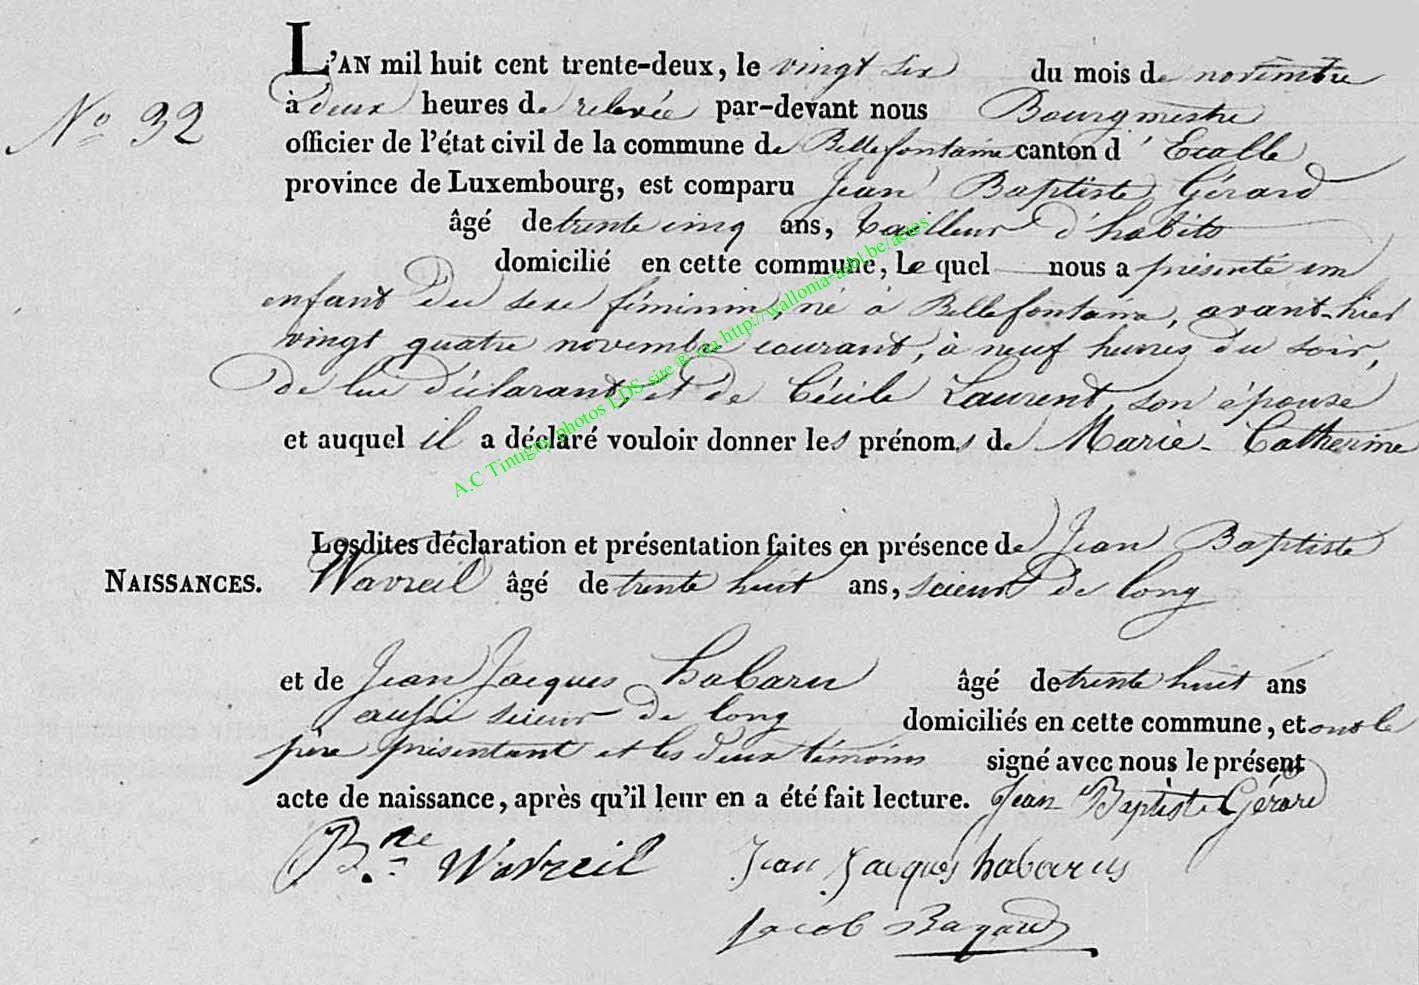 L'AN mil huit cent trente-deux, le vingt six du mois de novembre
No 32
à deux heures de relevée par-devant nous Bourgmestre
officier de l'état civil de la commune de Bellefontaine canton d'Etalle
province de Luxembourg, est comparu Jean Baptiste Gérard
âgé de trente cinq ans, tailleur d'habits
domicilié en cette commune, le quel nous a présenté un
enfant du sexe féminin, né à Bellefontaine, avant-hier
vingt quatre novembre courant, à neuf heures du soir,
de lui déclarant, et de Cécile Laurent son épouse
et auquel il a déclaré vouloir donner les prénoms de Marie-Catherine
A.C Tintigny photos LDS site ® via http://wallonia-asbl.be/actes
Lesdites déclaration et présentation faites en présence de Jean Baptiste
NAISSANCES. Wavreil âgé de trente huit ans, scieur de long
et de Jean Jacques habaru âgé de trente huit ans
aussi scieur de long domiciliés en cette commune, et ont le
père présentant et les deux témoins signé avec nous le présent
acte de naissance, après qu'il leur en a été fait lecture. Jean Baptiste Gérard
B.ne Wavreil Jean Jacques habarus
Jacob